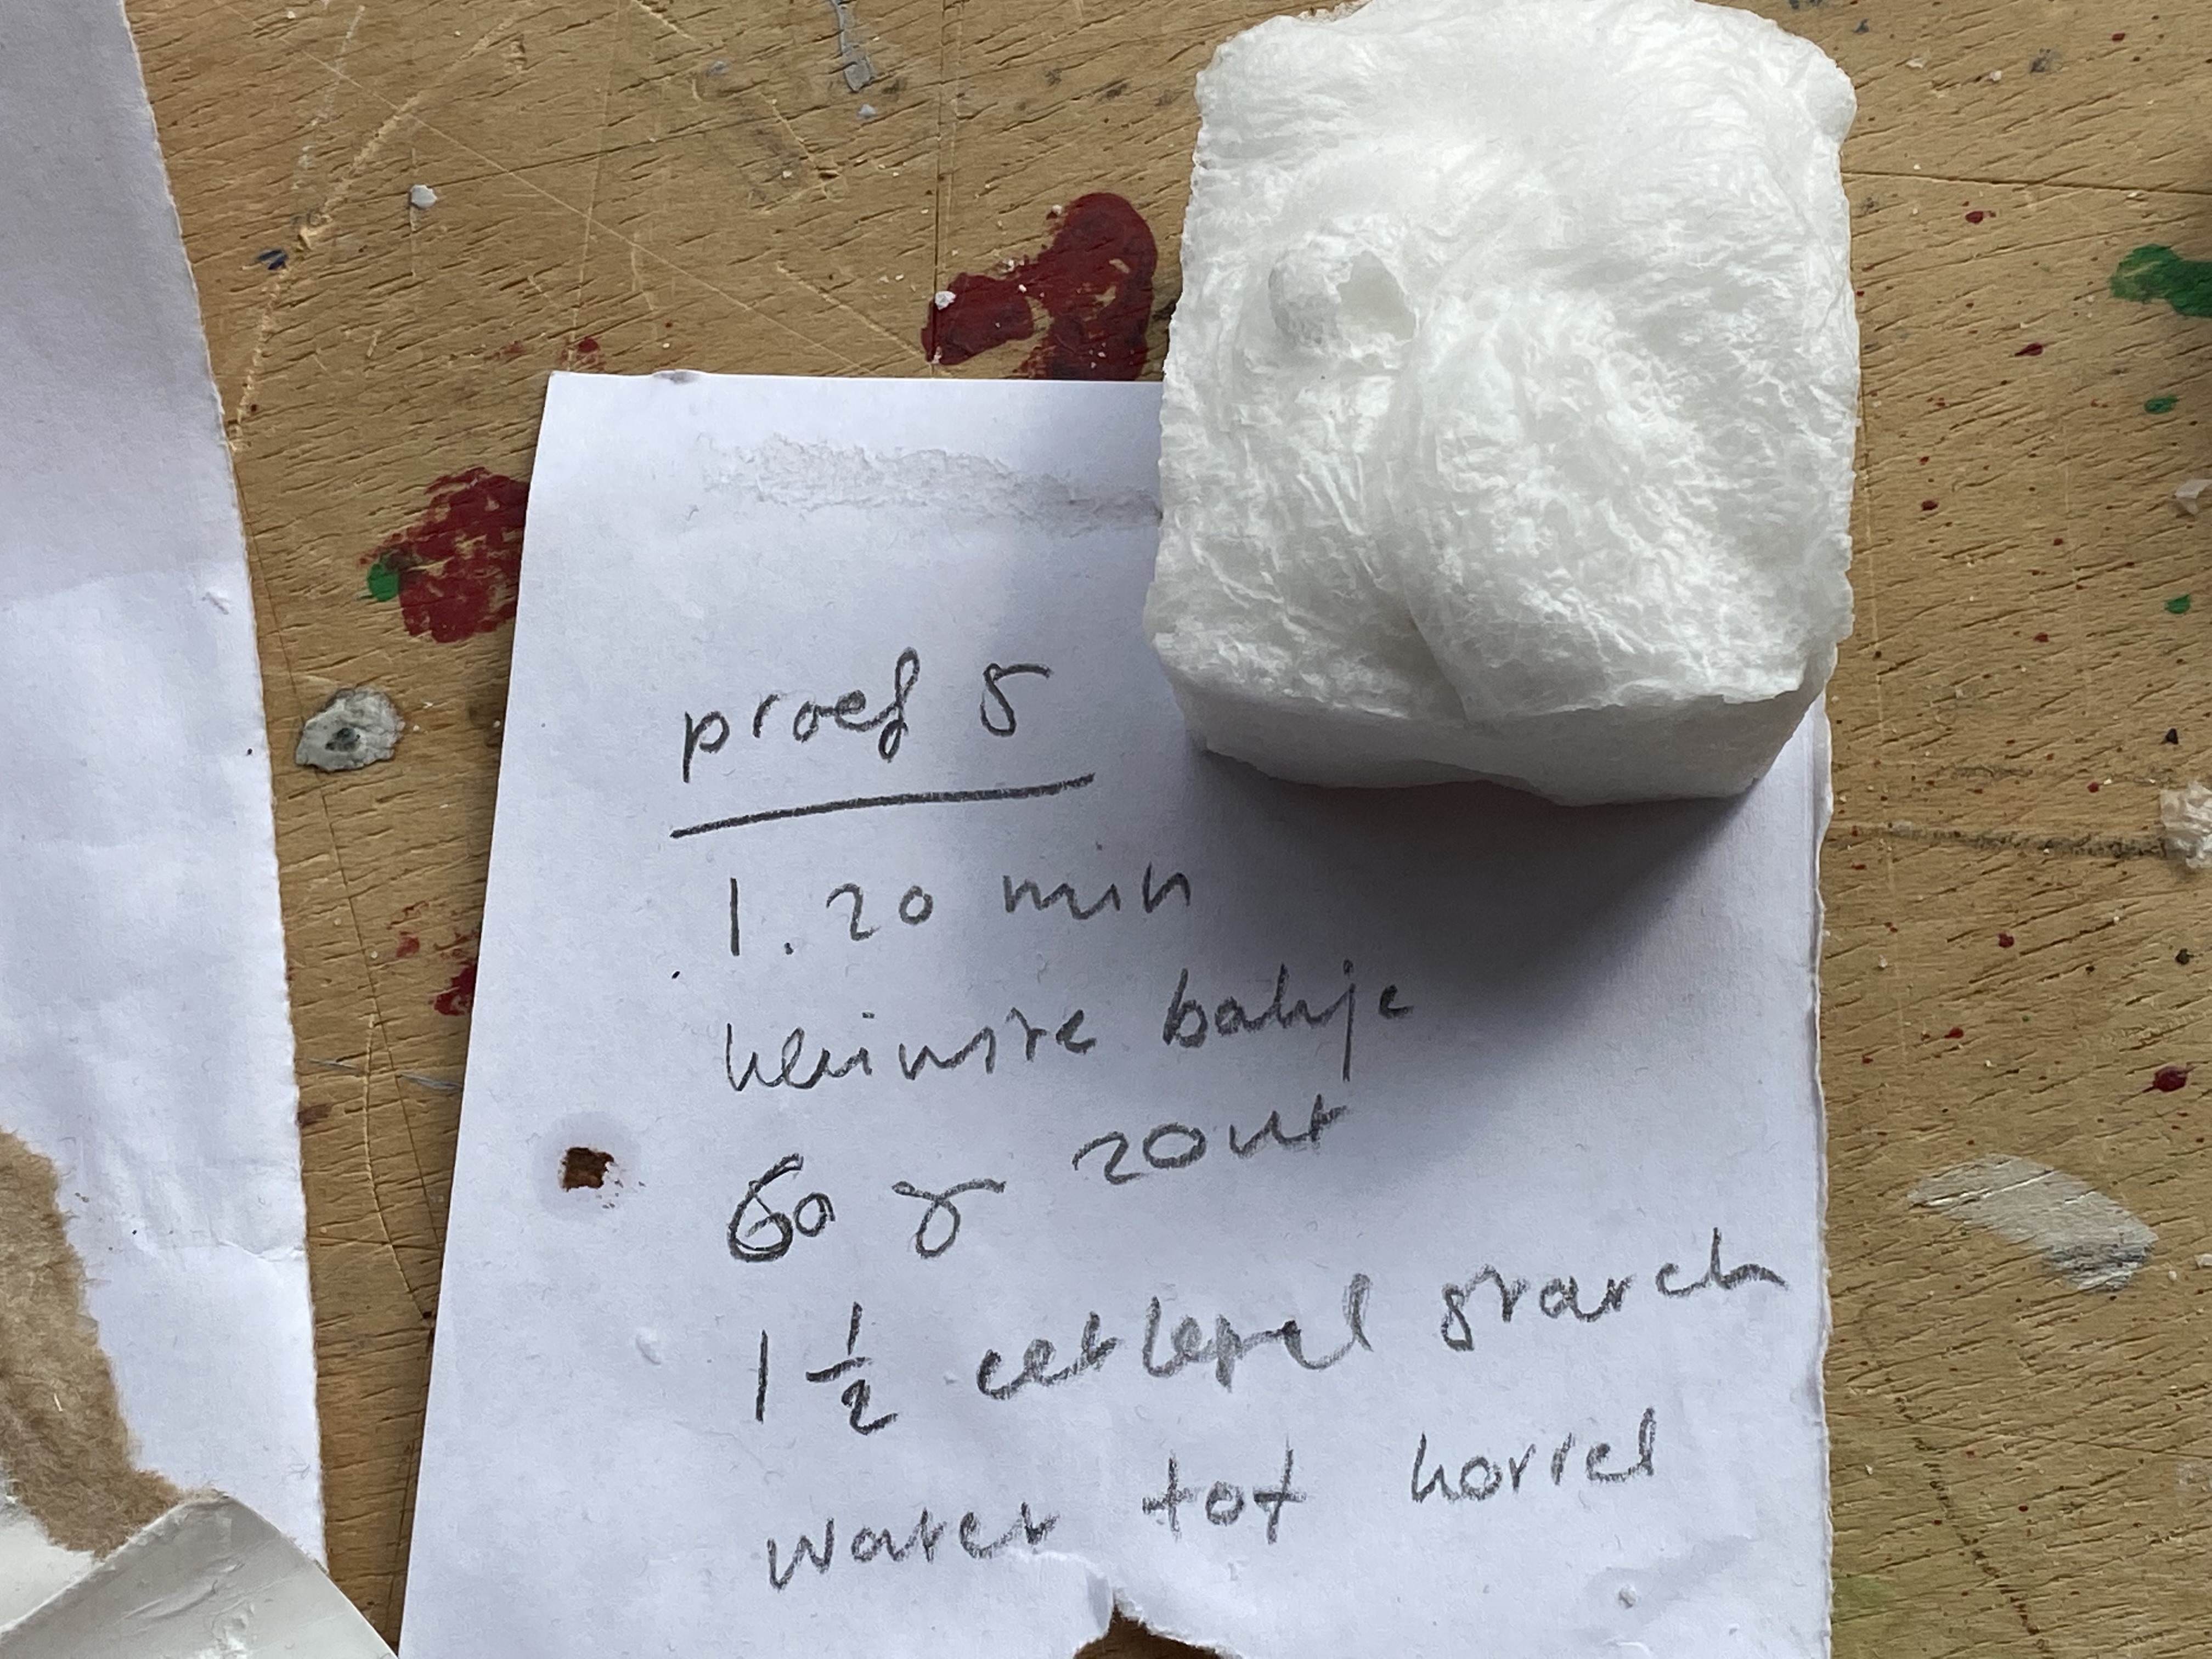 proef 5
1.20 min
kleinste bakje
60 gr zout
1 1/2 eetlepel starch
water tot korrel